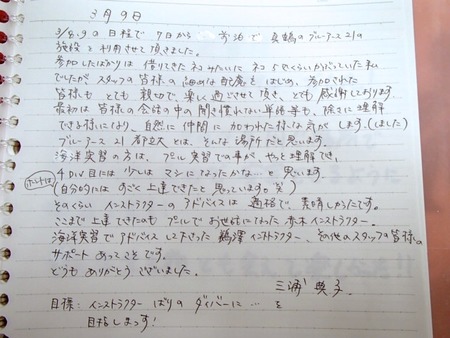 3月9日
3/8.9の日程で 7日から 前泊で 真鶴のブルーアース21の
施設を利用させて頂きました。
参加したばかりは 借りてきたネコ みたいに ネコ くらいかぶっていた私
でしたが スタッフの皆様の 細めな配慮を はじめ、参加された
皆様も とても親切で、楽しく過ごさせて頂き、とても感謝しております。
最初は 皆様の会話の中の聞き慣れない単語等も、除々に理解
できる様になり、自然に仲間に加われた様な気がします。(しました)
ブルーアース21都立大とは、そんな場所だと思います。
海洋実習の方は、プール実習での事が、やっと理解でき、
4Div目には 少しは マシになったかな…と思います。
ホントは
(自分的には すごく上達できたと思っています。笑)
そのくらい インストラクターのアドバイスは 適格で、素晴しかったです。
ここまで上達できたのも プールでお世話になった 赤木インストラクター、
海洋実習でアドバイスして下さった 鵜澤インストラクター、その他のスタッフの皆様の
サポートあってことです。
どうもありがとうございました。
三浦 典子
目標: インストラクターばりの ダイバーに…を
目指しまっす!